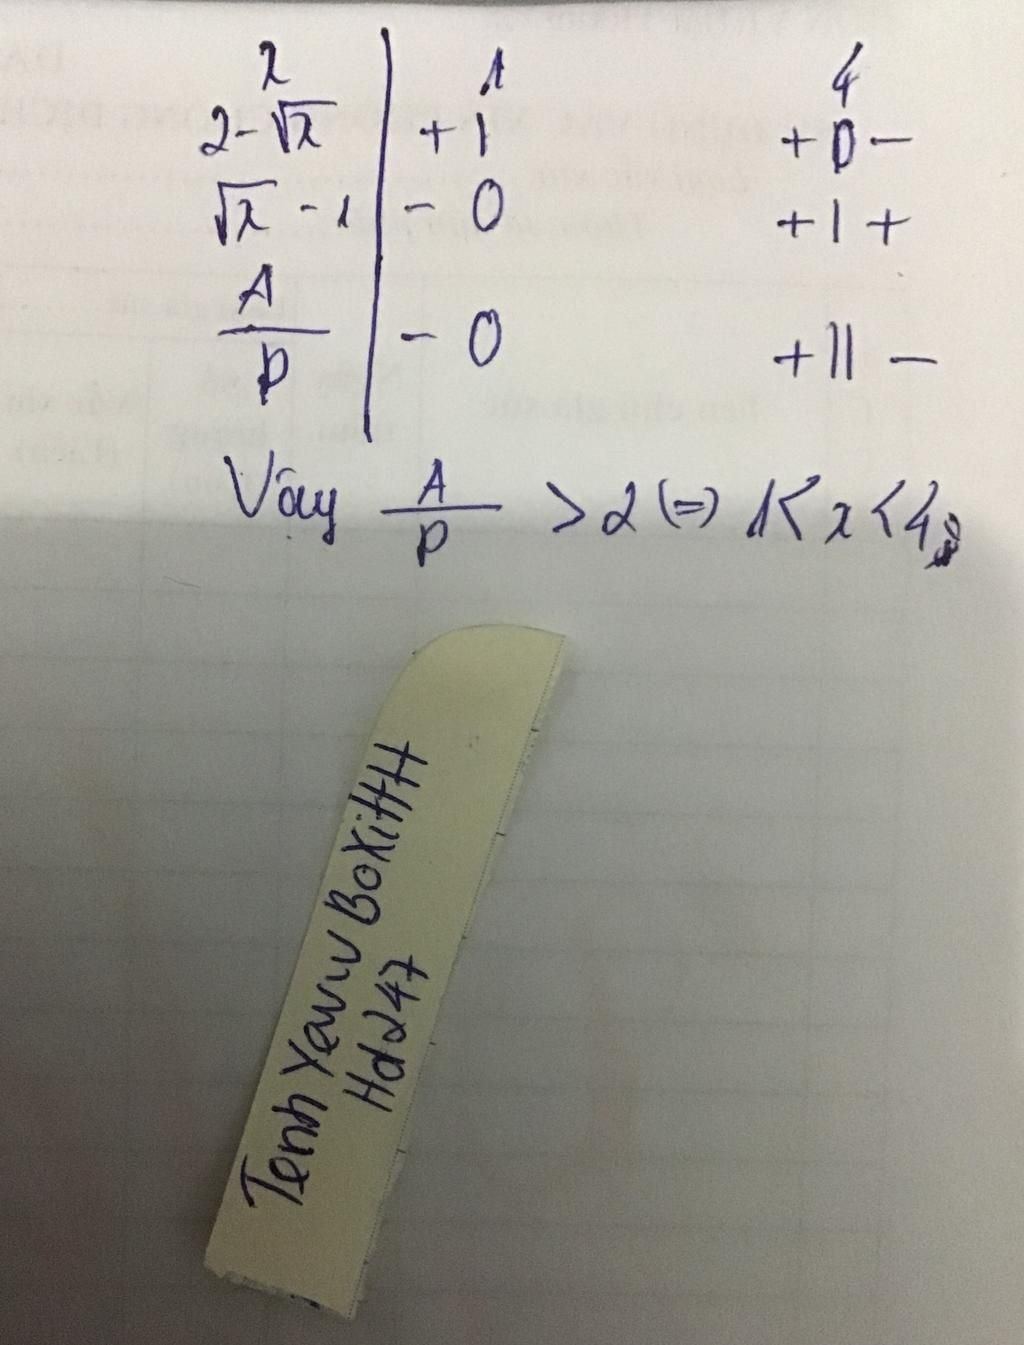 x | 1 4
2-√x | + | + 0 -
√x - 1 | - 0 + | +
A/P | - 0 + || -
Vậy A/P > 2 (=) 1 < x < 4
Tenh Yeuw BoXiHH
Hd247